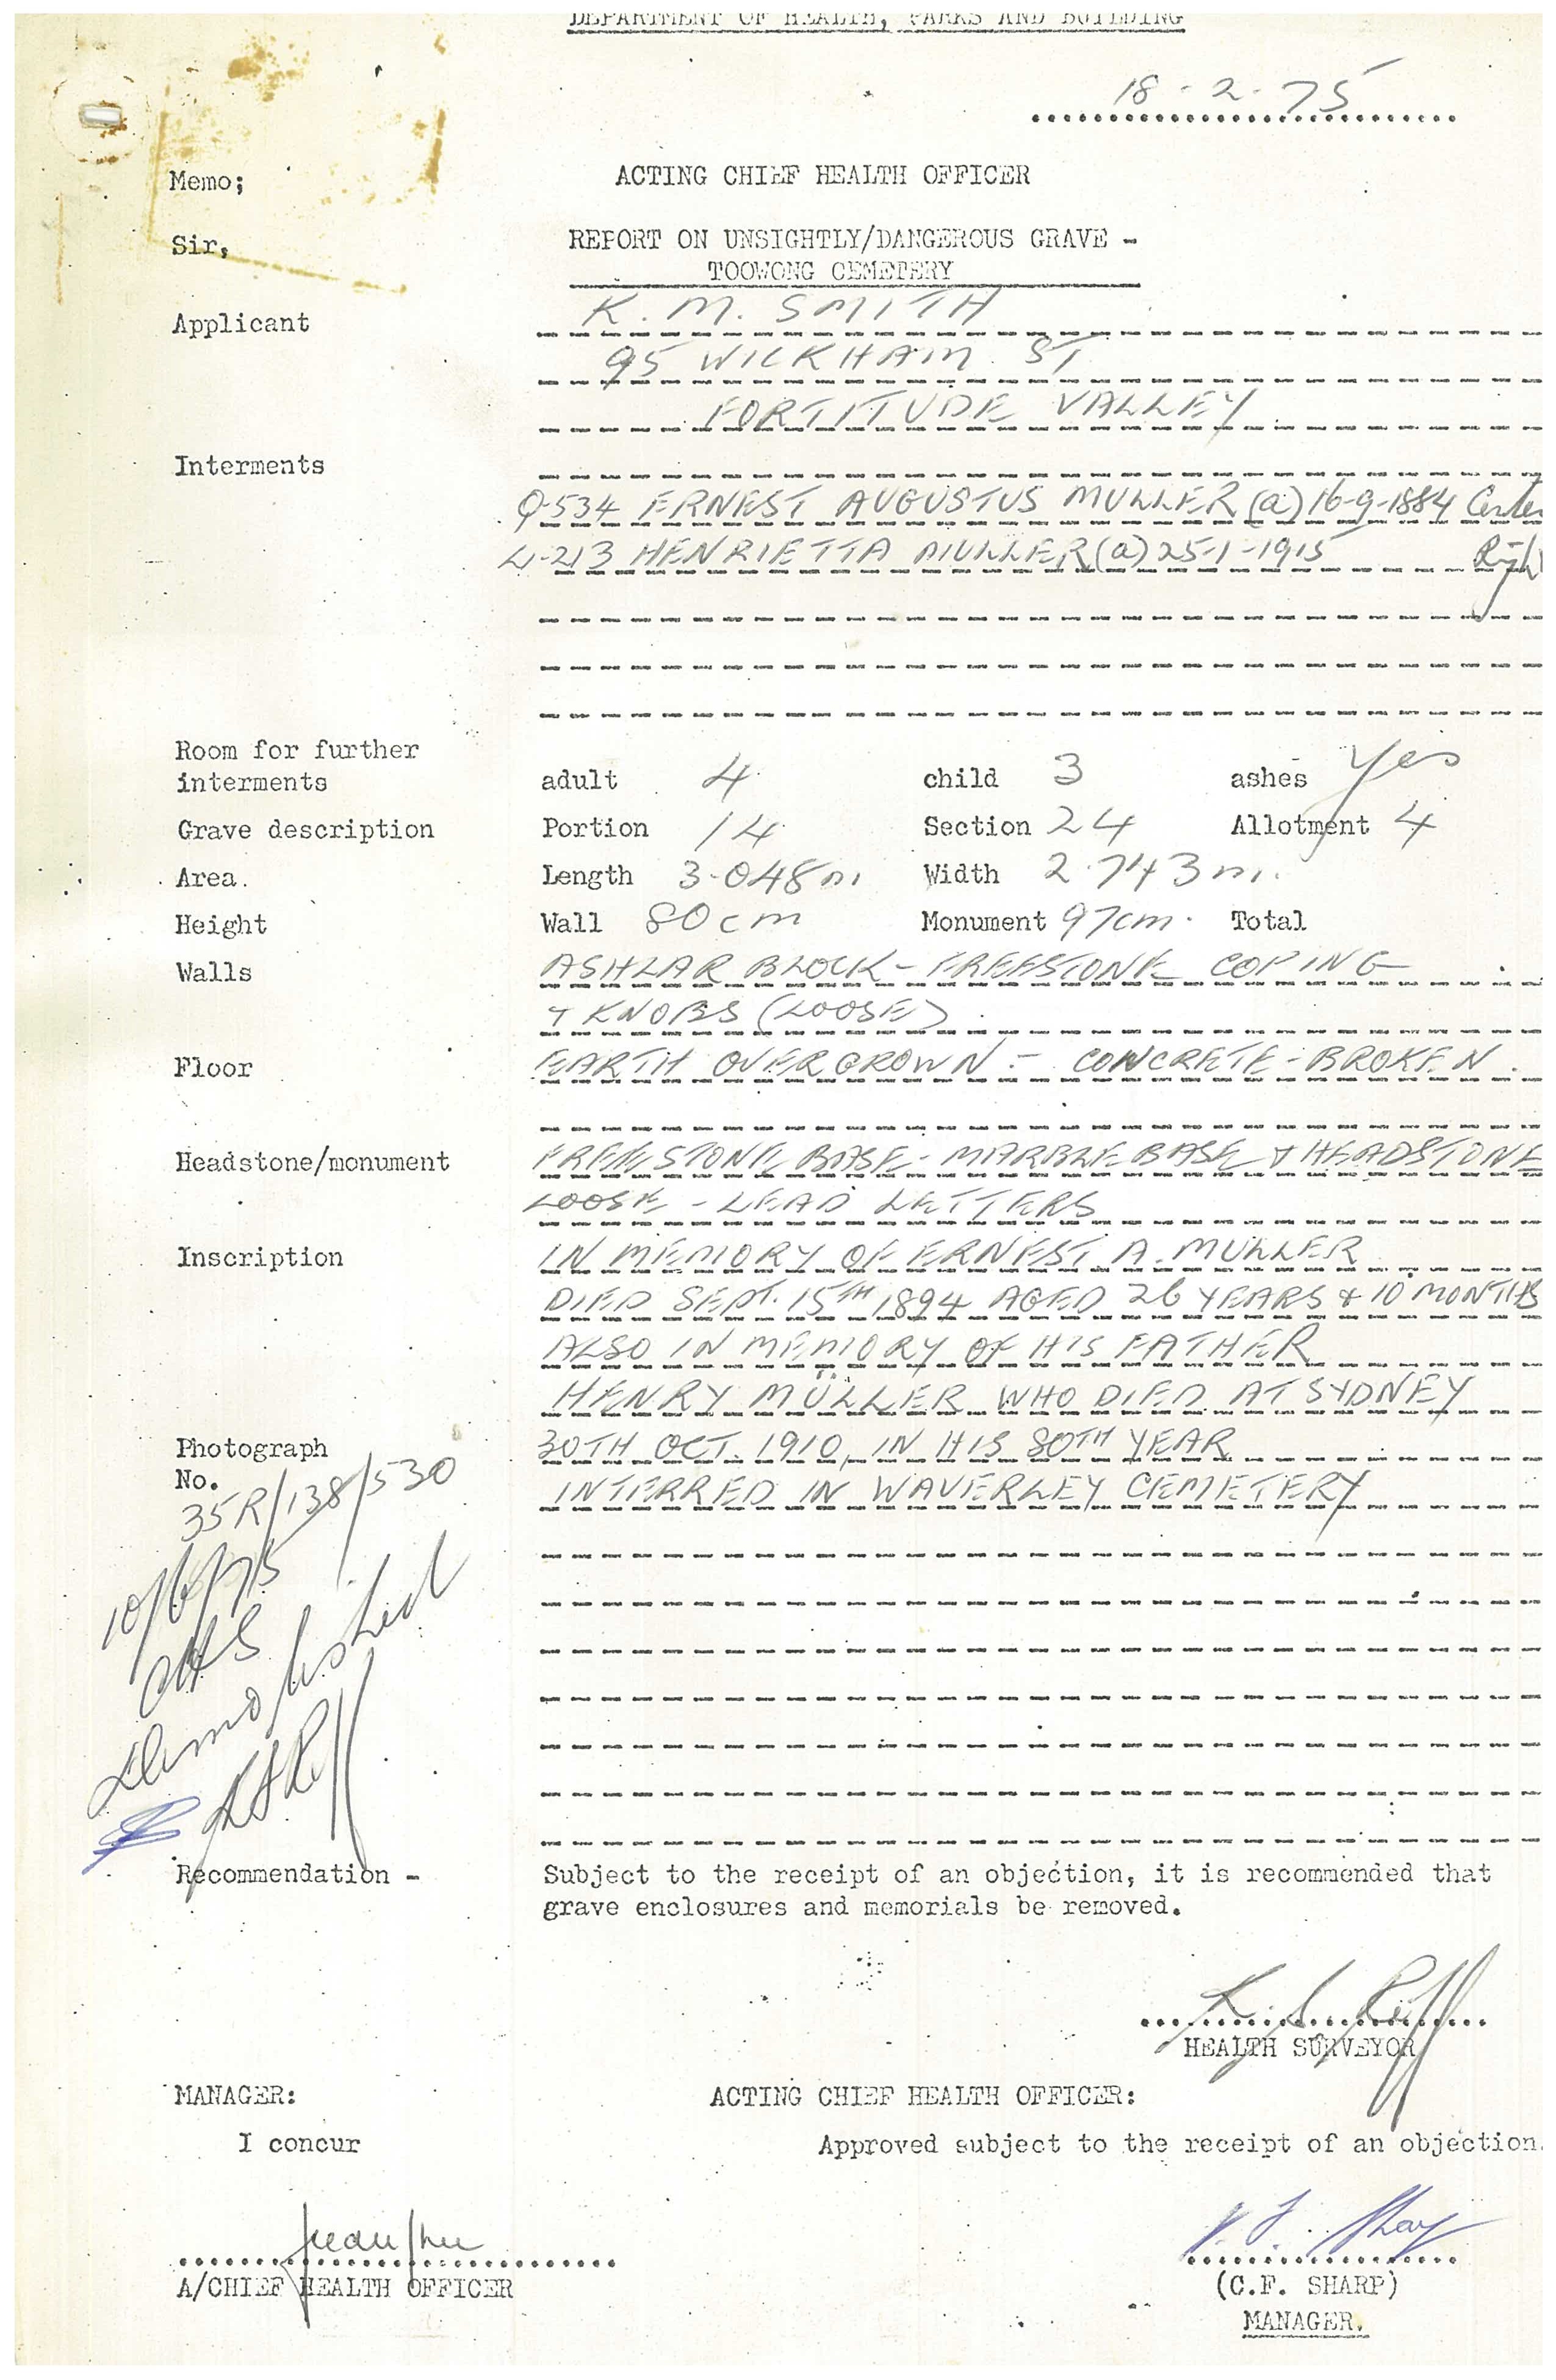 DEPARTMENT OF HEALTH, PARKS AND BUILDING
18-2-75
Memo; ACTING CHIEF HEALTH OFFICER
Sir, REPORT ON UNSIGHTLY/DANGEROUS GRAVE -
TOOWONG CEMETERY
Applicant K. M. SMITH
95 WICKHAM ST
FORTITUDE VALLEY
Interments
Q-534 ERNEST AUGUSTUS MULLER (a) 16-9-1884 Center
L-213 HENRIETTA MULLER (a) 25-1-1915 Right
Room for further
interments adult 4 child 3 ashes Yes
Grave description Portion 14 Section 24 Allotment 4
Area. Length 3.048m Width 2.743m.
Height Wall 80cm Monument 97cm. Total
Walls ASHLAR BLOCK - FREESTONE COPING
+ KNOBS (LOOSE)
Floor EARTH OVERGROWN - CONCRETE - BROKEN.
Headstone/monument FREESTONE BASE - MARBLE BASE + HEADSTONE
LOOSE - LEAD LETTERS
Inscription IN MEMORY OF ERNEST A. MULLER
DIED SEPT. 15TH 1894 AGED 26 YEARS & 10 MONTHS
ALSO IN MEMORY OF HIS FATHER
HENRY MÜLLER WHO DIED AT SYDNEY
Photograph 30TH OCT. 1910, IN HIS 80TH YEAR
No. INTERRED IN WAVERLEY CEMETERY
35R/138/530
10/6/75
Demolished
Recommendation - Subject to the receipt of an objection, it is recommended that
grave enclosures and memorials be removed.
HEALTH SURVEYOR
MANAGER: ACTING CHIEF HEALTH OFFICER:
I concur Approved subject to the receipt of an objection.
A/CHIEF HEALTH OFFICER (C.F. SHARP)
MANAGER.